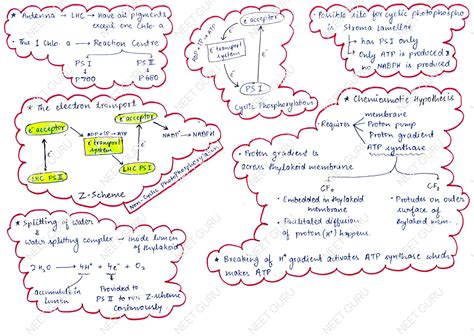 * Antenna → LHC → Have all pigments
except one Chlo a
* This 1 Chlo a → Reaction Centre
PS I PS II
P700 P680
e⁻ acceptor
ADP+iP → ATP
e⁻ transport
system
e⁻
e⁻
e⁻
PS I
Cyclic Photophosphorylation
* Possible site for cyclic photophospho
is Stroma lamellae
↳ has PS I only
↳ Only ATP is produced &
no NADPH is produced
* The electron transport
e⁻ acceptor
e⁻ acceptor
ADP+iP → ATP
NADP⁺ → NADPH
e⁻ transport
system
e⁻
e⁻
LHC PS II
LHC PS I
Z-Scheme
Non-Cyclic Photophosphorylation
* Chemiosmotic Hypothesis
Requires
membrane
Proton pump
Proton gradient
ATP synthase
• Proton gradient is
across thylakoid membrane
CF₀
CF₁
• Embedded in thylakoid
membrane
• Facilitated diffusion
of proton (H⁺) happens.
• Protrudes on outer
surface of
thylakoid mem.
* Breaking of H⁺ gradient activates ATP synthase which
makes ATP
* Splitting of water
Water splitting complex → Inside lumen
of thylakoid
2 H₂O → 4H⁺ + 4e⁻ + O₂
accumulate in
lumen
Provided to
PS II to run Z-scheme
continuously
NEET GURU